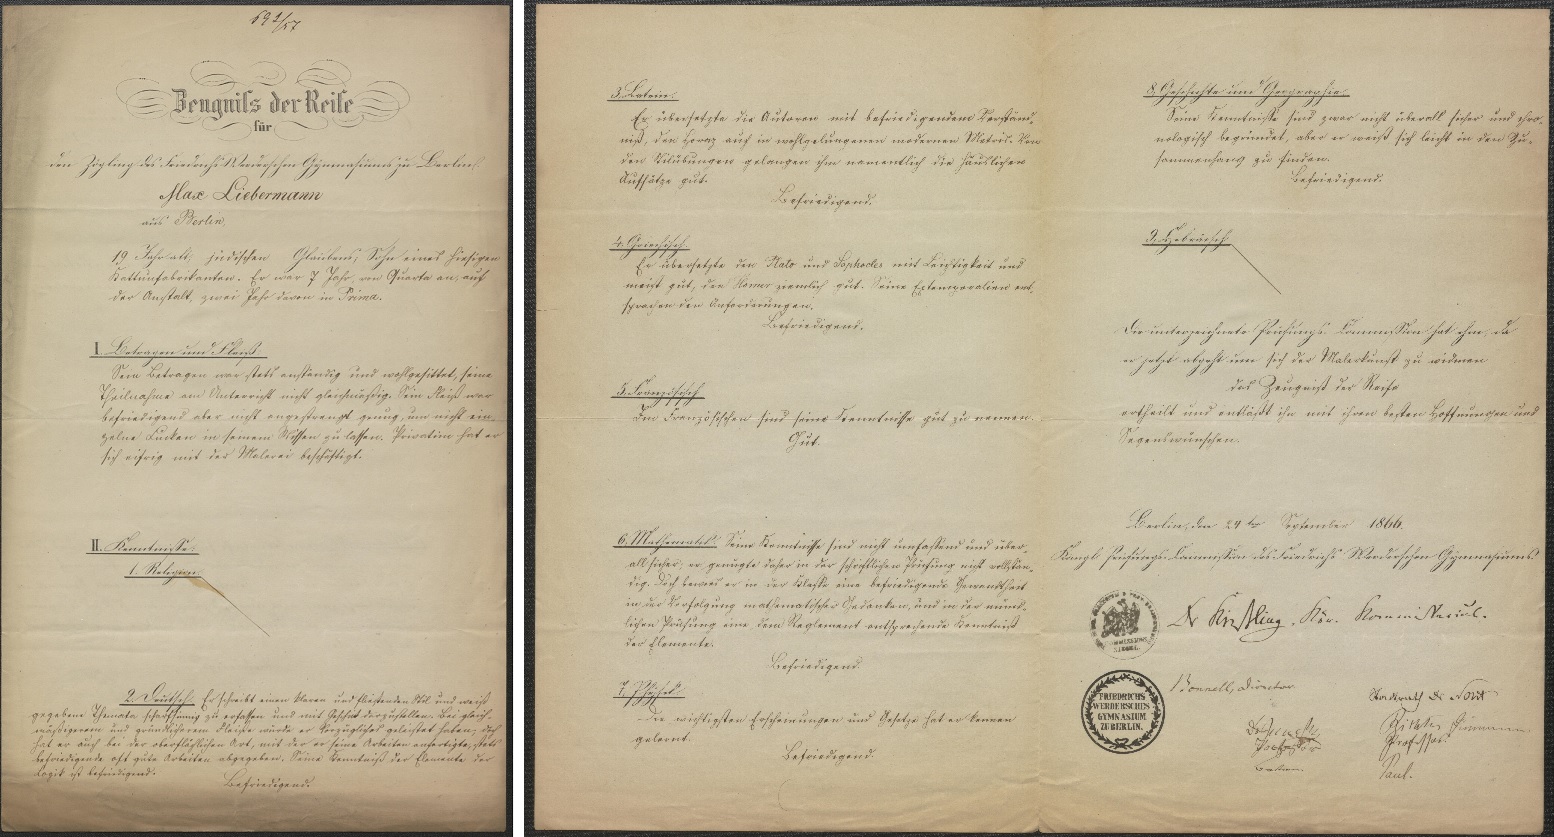 591/57
Zeugniss der Reife
für
den Zögling des Friedrichs-Werderschen Gymnasiums zu Berlin
Max Liebermann
aus Berlin,
19 Jahr alt, jüdischen Glaubens, Sohn eines hiesigen
Kattunfabrikanten. Er war 7 Jahr, von Quarta an, auf
der Anstalt, zwei Jahr davon in Prima.
I. Betragen und Fleiß.
Sein Betragen war stets anständig und wohlgesittet, seine
Theilnahme am Unterricht nicht gleichmäßig. Sein Fleiß war
befriedigend aber nicht angestrengt genug, um nicht ein-
zelne Lücken in seinem Wissen zu lassen. Privatim hat er
sich eifrig mit der Malerei beschäftigt.
II. Kenntnisse.
1. Religion
2. Deutsch. Er schreibt einen klaren und fließenden Stil und weiß
gegebene Themata scharfsinnig zu erfassen und mit Geschick darzustellen. Bei gleich-
mäßigerem und gründlicherem Fleiße würde er Vorzügliches geleistet haben; doch
hat er auch bei der oberflächlichen Art, mit der er seine Arbeiten anfertigte, stets
befriedigende oft gute Arbeiten abgegeben. Seine Kenntniß der Elemente der
Logik ist befriedigend.
Befriedigend.
3. Latein.
Er übersetzte die Autoren mit befriedigendem Verständ-
niß, den Horaz auch in wohlgelungenen modernen Metris. Von
den Stilübungen gelangen ihm namentlich die häuslichen
Aufsätze gut.
Befriedigend.
4. Griechisch.
Er übersetzte den Plato und Sophocles mit Leichtigkeit und
meist gut, den Homer ziemlich gut. Seine Extemporalien ent-
sprachen den Anforderungen.
Befriedigend.
5. Französisch
Im Französischen sind seine Kenntnisse gut zu nennen.
Gut.
6. Mathematik. Seine Kenntnisse sind nicht umfassend und über-
all sicher; er genügte daher in der schriftlichen Prüfung nicht vollstän-
dig. Doch bewies er in der Klasse eine befriedigende Gewandtheit
in der Verfolgung mathematischer Gedanken, und in der münd-
lichen Prüfung eine dem Reglement entsprechende Kenntniß
der Elemente.
Befriedigend.
7. Physik.
Die wichtigsten Erscheinungen und Gesetze hat er kennen
gelernt.
Befriedigend.
8. Geschichte und Geographie.
Seine Kenntnisse sind zwar nicht überall sicher und chro-
nologisch begründet, aber er weiß sich leicht in den Zu-
sammenhang zu finden.
Befriedigend.
9. Hebräisch.
Die unterzeichnete Prüfungs-Commission hat ihm, da
er jetzt abgeht um sich der Malerkunst zu widmen
das Zeugniß der Reife
ertheilt und entläßt ihn mit ihren besten Hoffnungen und
Segenswünschen.
Berlin, den 29ten September 1866.
Königl. Prüfungs-Commission des Friedrichs-Werderschen Gymnasiums
Dr Kießling, Kön. Kommissarius.
Bonnell, Director.
Stadtrath
Richter
Professor
Professor
Paul.
FRIEDRICHS
WERDERSCHES
GYMNASIUM
ZU BERLIN.